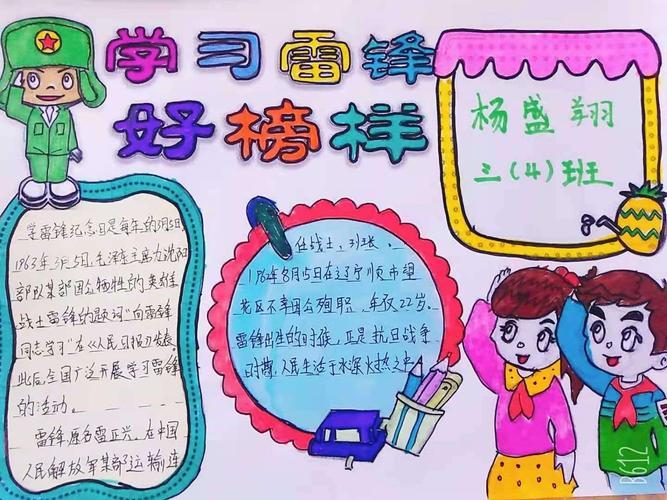 学习雷锋
好榜样
杨盛翔
三(4)班
学雷锋纪念日是每年的3月5日
1963年3月5日,毛泽东主席为沈阳
部队某部因公牺牲的英雄
战士雷锋的题词"向雷锋
同志学习"在《人民日报》发表
此后全国广泛开展学习雷锋
的活动。
雷锋原名雷正兴,在中国
人民解放军某部运输连
任战士、班长、
1962年8月15日在辽宁顺市望
花区不幸因公殉职,年仅22岁。
雷锋出生的时候,正是抗日战争
时期,人民生活于水深火热之中
B612